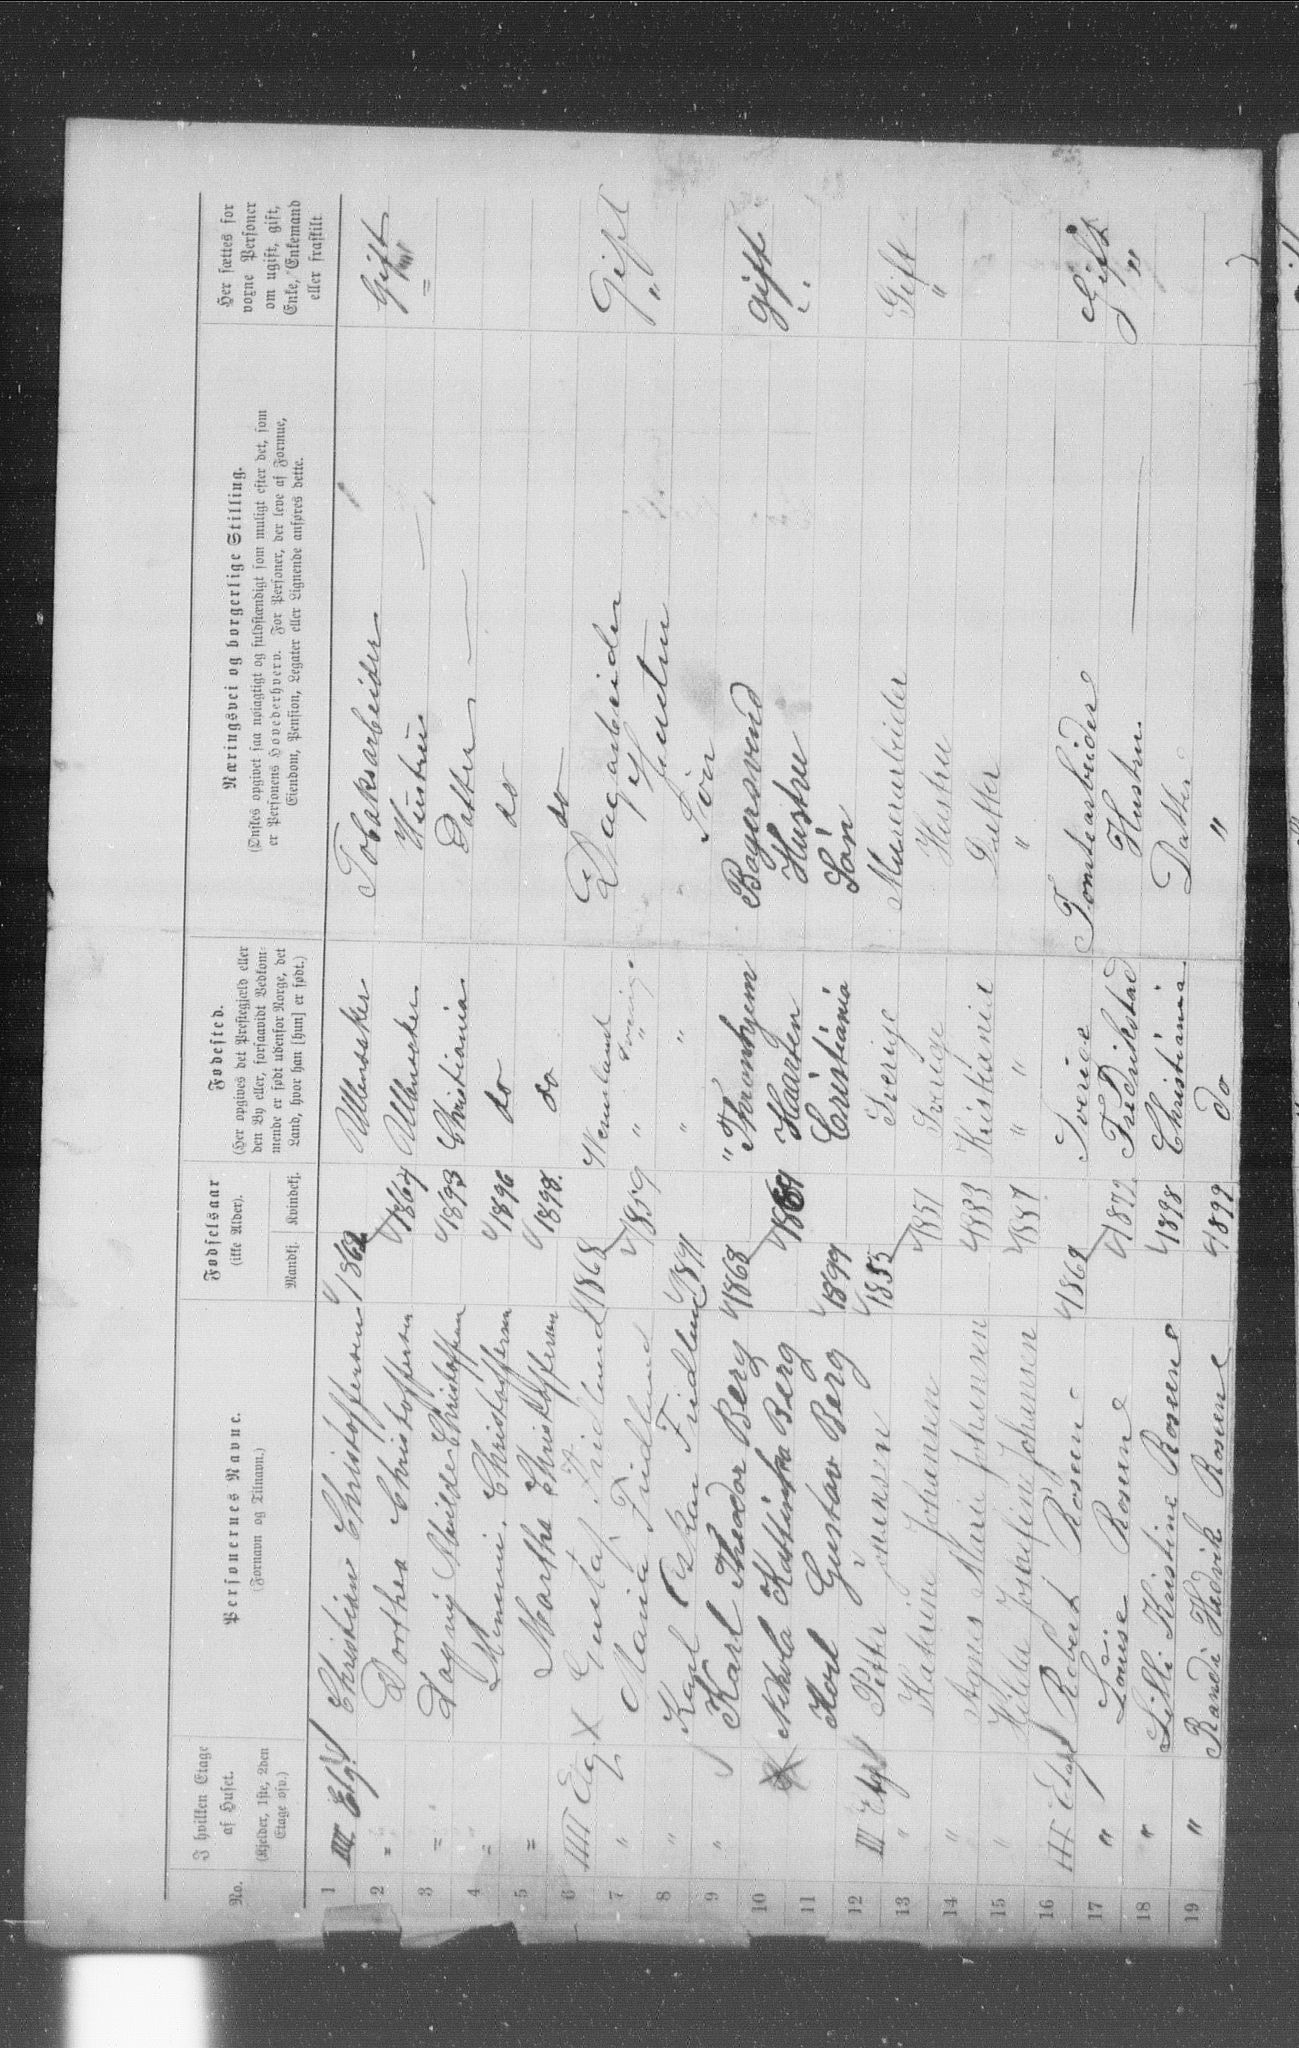 No.
I hvilken Etage
af Huset.
(Kjelder, 1ste, 2den
Etage osv.)
Personernes Navne.
(Fornavn og Tilnavn.)
Fødselsaar
(ikke Alder).
Mandkj.
Kvindekj.
Fødested.
(Her opgives det Prestegjæld eller
den By eller, forsaavidt Vedkom-
mende er født udenfor Norge, det
Land, hvor han [hun] er født.)
Næringsvei og borgerlige Stilling.
(Ønskes opgivet saa nøiagtigt og fuldstændigt som muligt efter det, som
er Personens Hovederhverv. For Personer, der leve af Formue,
Eiendom, Pension, Legater eller Lignende anføres dette.
Her sættes for
voxne Personer
om ugift, gift,
Enke, Enkemand
eller fraskilt.
1 III Etg Christian Christoffersen 1862 Ullensaker Tobaksarbeider Gift
2 " Dorthea Christoffersen 1864 Ullensaker Hustru "
3 " Dagny Christoffersen 1893 Christiania Datter
4 " Christoffersen 1896 do do
5 " Martha Christoffersen 1898 do do
6 IIII Etg Gustaf Fridlund 1868 Wermland Dagarbeider Gift
7 " Maria Fridlund 1859 " Sverige Hustru "
8 " Karl Oskar Fridlund 1891 " " Søn
9 " Karl Theodor Berg 1868 " Thronhjem Bagersvend gift
10 Nikola Kattinka Berg 1869 Haarten Hustru "
11 Karl Gustav Berg 1899 Cristiania Søn
12 III Etg Petter Johansen 1853 Sverige Murarbeider Gift
13 " Katrine Johansen 1857 Sverige Hustru "
14 " Agnes Marie Johansen 1883 Kristiania Datter
15 " Hilda Josefine Johansen 1887 " " "
16 Etage Robert Rosen 1862 Sverige Tomtearbeider Gift
17 " Louise Rosen 1872 Frederikstad Hustru "
18 " Lilli Kristine Rosen 1898 Christiania Datter
19 " Randi Hedvik Rosen 1899 do "